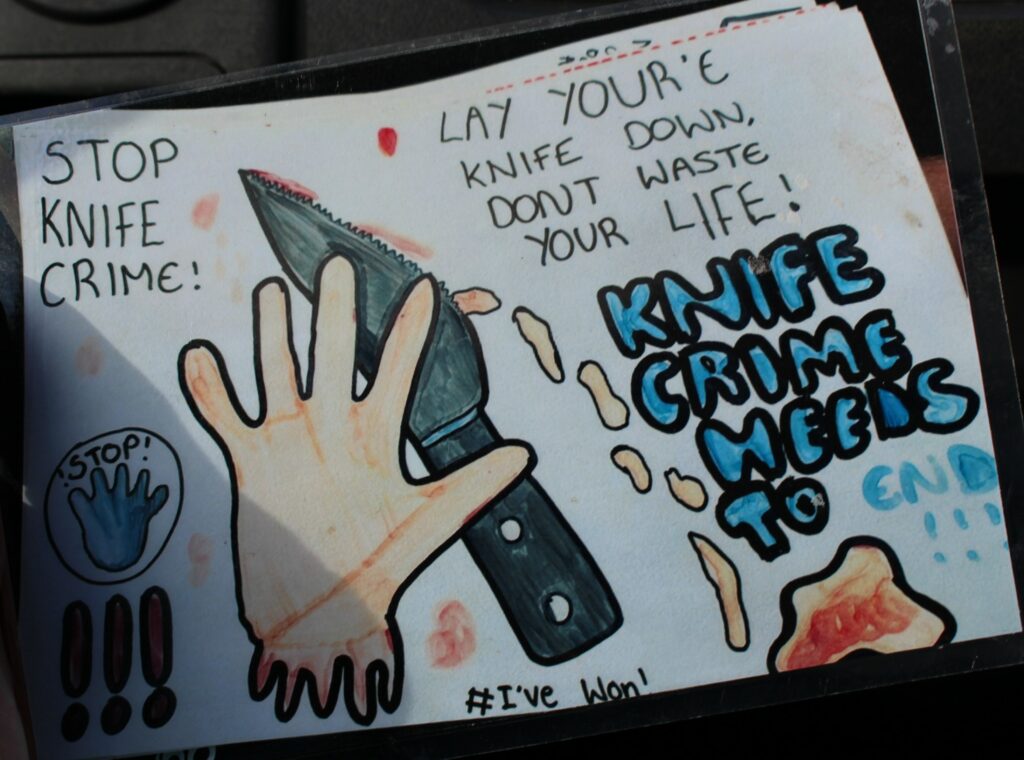 STOP
KNIFE
CRIME!
LAY YOUR'E
KNIFE DOWN,
DONT WASTE
YOUR LIFE!
KNIFE
CRIME
NEEDS
TO END
!!!
!STOP!
!!!
#I've Won!